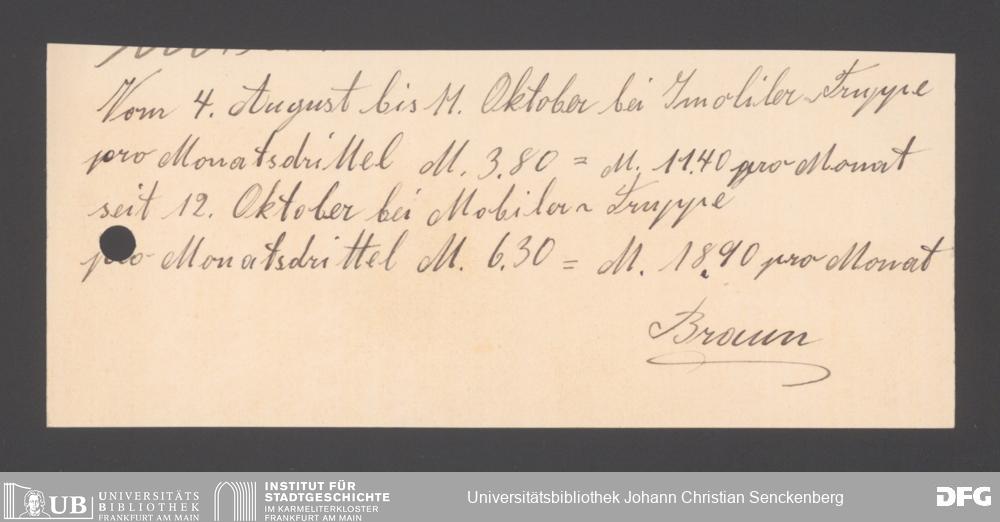 Vom 4. August bis 11. Oktober bei Imoliler Truppe
pro Monatsdrittel M. 3.80 = M. 11.40 pro Monat
seit 12. Oktober bei Mobiler Truppe
pro Monatsdrittel M. 6.30 = M. 18.90 pro Monat
Braun
UB
UNIVERSITÄTS
BIBLIOTHEK
FRANKFURT AM MAIN
INSTITUT FÜR
STADTGESCHICHTE
IM KARMELITERKLOSTER
FRANKFURT AM MAIN
Universitätsbibliothek Johann Christian Senckenberg
DFG